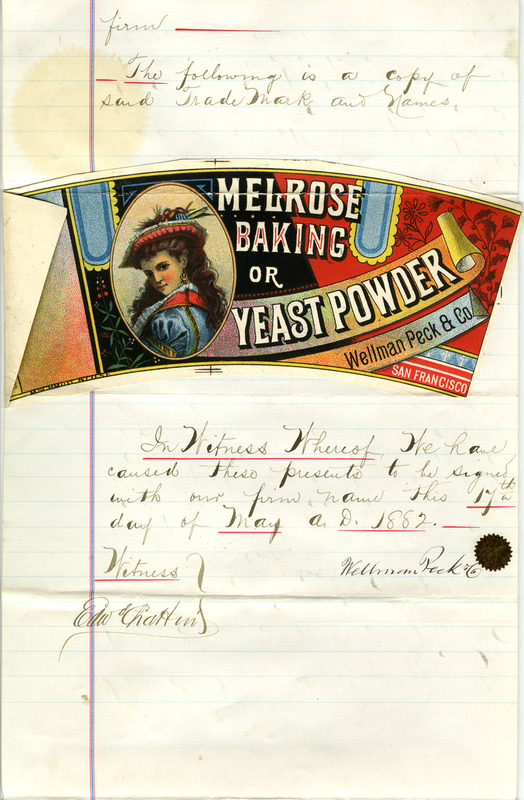 firm
The following is a copy of
said Trade Mark and Names.
MELROSE
BAKING
OR
YEAST POWDER
Wellman Peck & Co
SAN FRANCISCO
In Witness Whereof, We have
caused these presents to be signed
with our firm name this 17th
day of May A. D. 1882.
Witness
Wellman Peck & Co
Edw Chatten